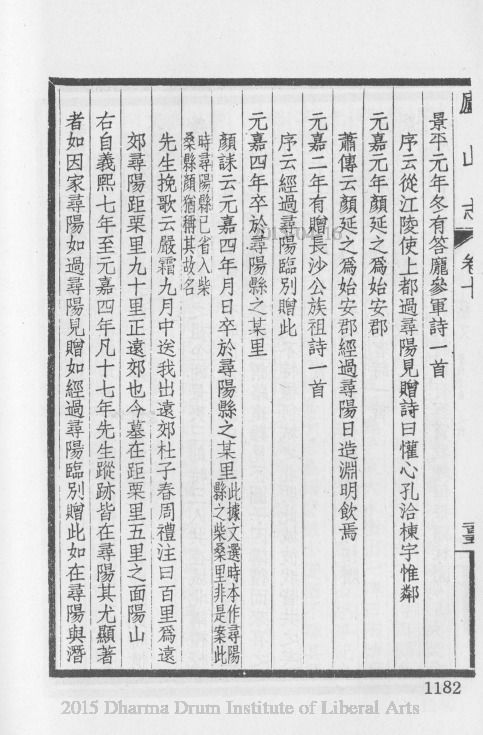 廬山志 卷十
景平元年冬有答龐參軍詩一首
序云從江陵使上都過尋陽見贈詩曰懽心孔洽棟宇惟鄰
元嘉元年顏延之爲始安郡
蕭傳云顏延之爲始安郡經過尋陽日造淵明飲焉
元嘉二年有贈長沙公族祖詩一首
序云經過尋陽臨別贈此
元嘉四年卒於尋陽縣之某里
顏誄云元嘉四年月日卒於尋陽縣之某里此據文選時本作尋陽
縣之柴桑里非是案此
時尋陽縣已省入柴
桑縣顏猶稱其故名
先生挽歌云嚴霜九月中送我出遠郊杜子春周禮注曰百里爲遠
郊尋陽距栗里九十里正遠郊也今墓在距栗里五里之面陽山
右自義熙七年至元嘉四年凡十七年先生蹤跡皆在尋陽其尤顯著
者如因家尋陽如過尋陽見贈如經過尋陽臨別贈此如在尋陽與潛
1182
2015 Dharma Drum Institute of Liberal Arts